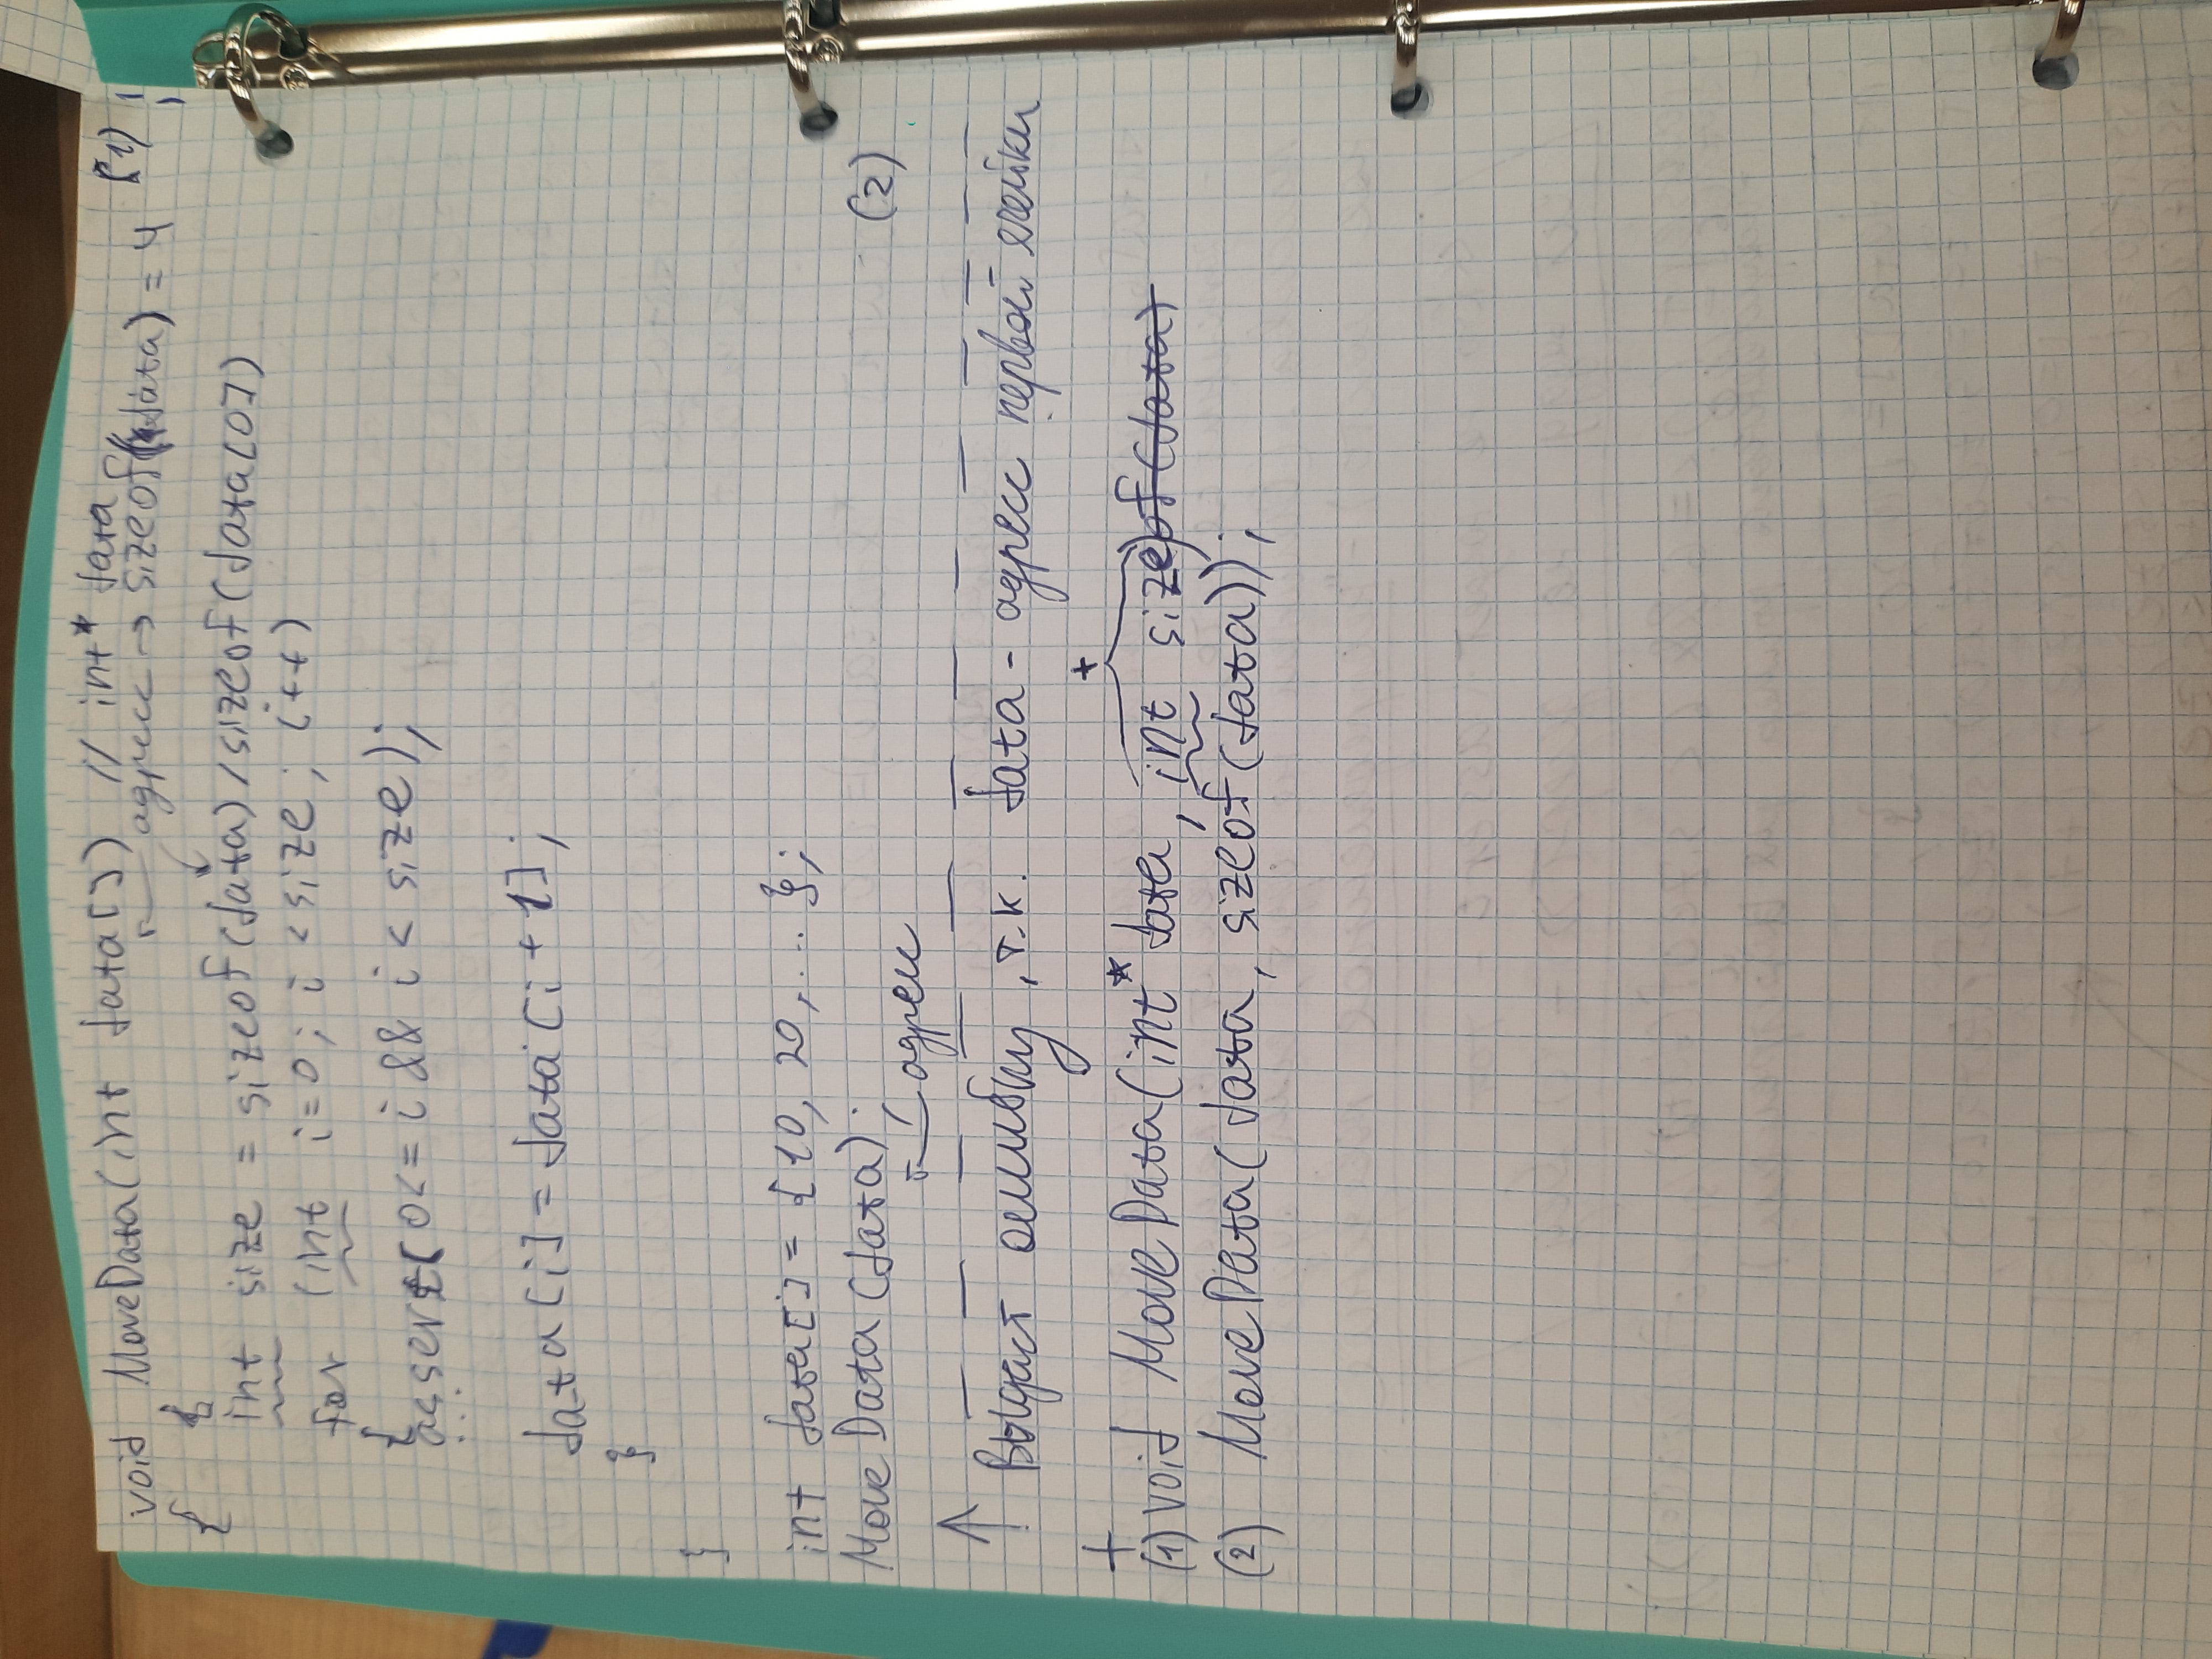 void MoveData(int data[]) // int* data (1)
адресс → sizeof(data) = 4
{
int size = sizeof(data) / sizeof(data[0])
for (int i=0; i < size; i++)
{
assert(0<= i && i < size);
...
data[i] = data[i+1];
}
}
int data[] = {10, 20, ... };
MoveData(data); (2)
адресс
↑ Выдаст ошибку, т.к. data - адресс первой ячейки
+ +
(1) void MoveData(int* data, int size)of(data)
(2) MoveData(data, sizeof(data));